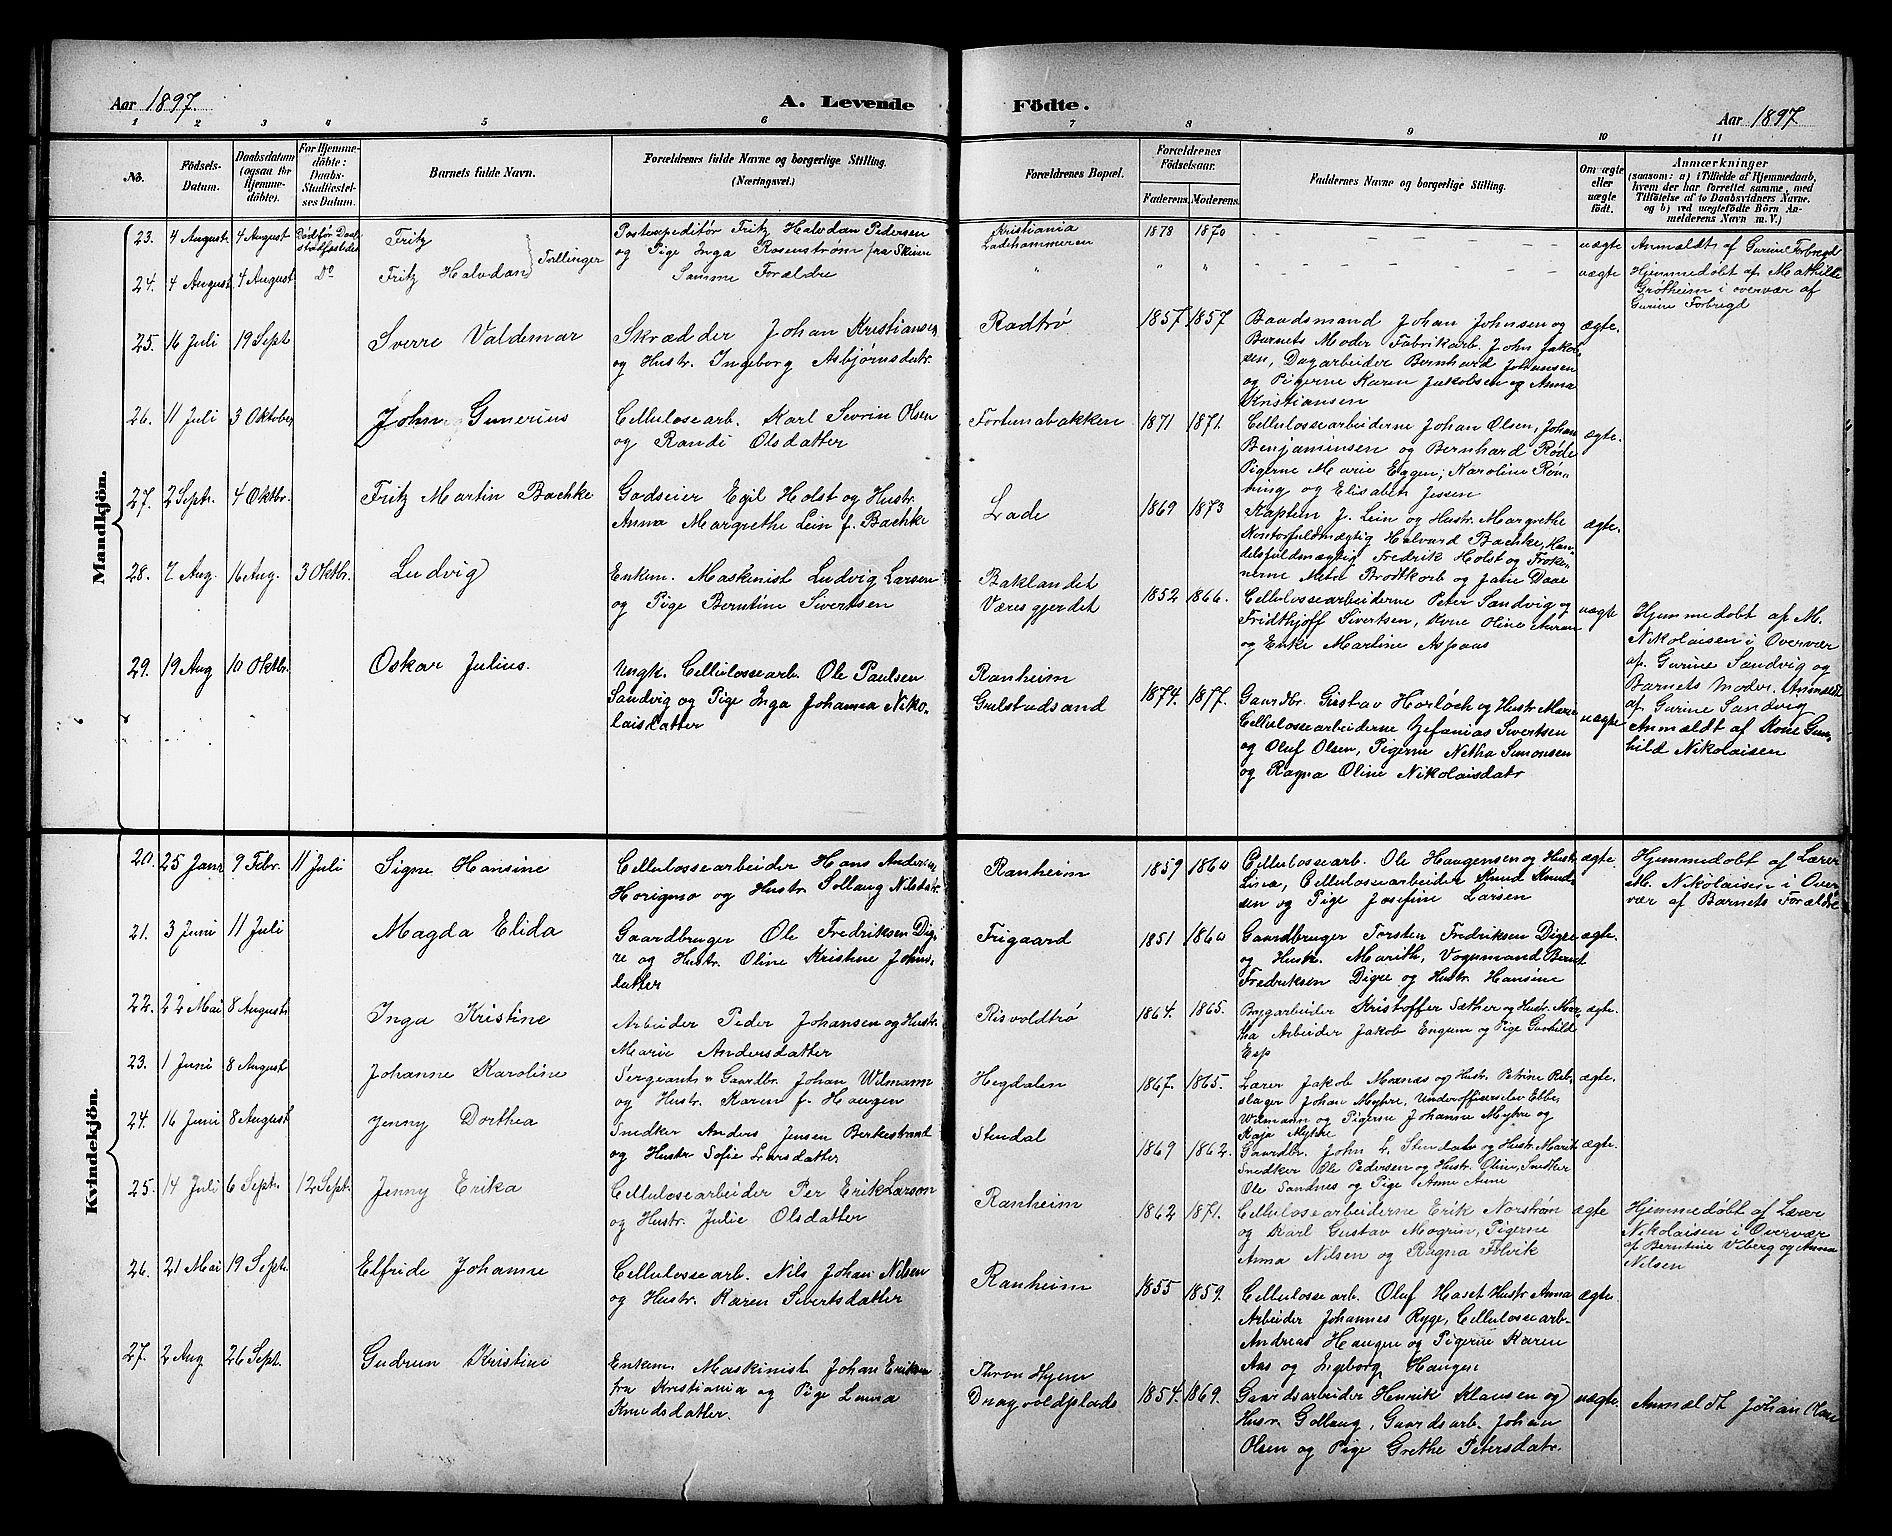 Aar 1897. A. Levende Födte. Aar 1897
1 2 3 4 5 6 7 8 9 10 11
No. Födsels-Datum. Daabsdatum (ogsaa for Hjemme-döbte). For Hjemme-döbte: Daabs-Stadfæstel-ses Datum. Barnets fulde Navn. Forældrenes fulde Navne og borgerlige Stilling. (Næringsvei.) Forældrenes Bopæl. Forældrenes Födselsaar. Faderens. Moderens. Faddernes Navne og borgerlige Stilling. Om ægte eller uægte født. Anmærkninger (saasom: a) i Tilfælde af Hjemmedaab, hvem der har forrettet samme, med Tilføielse af to Daabsvidners Navne, og b) ved uægtefödte Börn An-melderens Navn m. V.)
Mandkjön.
23. 4 August. 4 August Fritz Tvillinger Postexpeditør Fritz Halvdan Pedersen
og Pige Inga Rosenstrøm fra Skien
Kristiania
Ladehammeren
1873 1870 uægte Anmeldt af Gurine Forbregd
24. 4 August 4 August Do Fritz Halvdan Samme Forældre " " " uægte Hjemmedøbt af Mathilde
Grøtheim i overvær af
Gurine Forbregd
25. 16 Juli 19 Sept Sverre Valdemar Skrædder Johan Kristiansen
og Hustr. Ingeborg Asbjørnsdatr.
Rodtrø 1857 1857 Baadsmand Johan Johnsen og
Barnets Moder Fabrikarb. John Jakob-
sen, Dagarbeider Bernhard Johansen
og Pigerne Karen Jakobsen og Anna
Kristiansen
ægte.
26. 11 Juli 3 Oktober Johan Gunerius Cellulosearb. Karl Sevrin Olsen
og Randi Olsdatter
Fortunabakken 1871 1871. Cellulosearbeiderne Johan Olsen, Johan
Benjaminsen og Bernhard Røde
Pigerne Marie Eggen, Karoline Røn-
ning og Elisabet Jessen
ægte.
27. 2 Sept. 4 Oktbr. Fritz Martin Bachke Godseier Egil Holst og Hustr.
Anna Margrethe Lein f. Bachke
Lade 1869 1873 Kaptein J. Lein og Hustr. Margrethe
Kontorfuldmægtig Halvard Bachke, Han-
delsfuldmægtig Fredrik Holst og Frøke-
nerne Meta Brodtkorb og Jane Daae
ægte.
28. 7 Aug. 16 Aug. 3 Oktbr. Ludvig Enkem. Maskinist Ludvig Larsen
og Pige Berntine Sivertsen
Baklandet
Væresgjerdet
1852 1866. Cellulosearbeiderne Peter Sandvig og
Fridthjoff Sivertsen, Kone Oline
og Enke Martine Aspaas
uægte Hjemmedøbt af M.
Nikolaisen i Overvær
af. Gurine Sandvig og
Barnets Moder. Anmeldt
af Gurine Sandvig
29. 19 Aug 10 Oktbr. Oskar Julius. Ungk. Cellulosearb. Ole Paulsen
Sandvig og Pige Inga Johanna Niko-
laisdatter
Ranheim
Grilstadsand
1874. 1877. Gaardbr. Gustav Horløck og Hustr. Marie
Cellulosearbeiderne Zefanias Sivertsen
og Oluf Olsen, Pigerne Netha Simonsen
og Ragna Oline Nikolaisdatr
uægte Anmældt af Kone Gun-
hild Nikolaisen
Kvindekjön.
20. 25 Janr 9 Febr. 11 Juli Signe Hansine Cellulosearbeider Hans Andersen
Horigmo og Hustr. Sollaug Nilsdatr.
Ranheim 1859 1860 Cellulosearb. Ole Haugensen og Hustr.
Lina, Cellulosearbeider Knud Knud-
sen og Pige Josefine Larsen
ægte. Hjemmedøbt af Lærer
M. Nikolaisen i Over-
vær af Barnets Forældre
21. 3 Juni 11 Juli Magda Elida Gaardbruger Ole Fredriksen Dig-
re og Hustr. Oline Kristine Johns-
datter
Frigaard 1851 1860 Gaardbruger Torsten Fredriksen Digre
og Hustr. Marith, Vognmand Bernt
Fredriksen Digre og Hustr. Hansine
ægte.
22. 22 Mai 8 August Inga Kristine Arbeider Peder Johansen og Hustr.
Marie Andersdatter
Risvoldtrø 1864. 1865. Bygarbeider Kristoffer Sæther og Hustr. Mar-
tha Arbeider Jakob Engum og Pige Gunhild
Esp
ægte.
23. 1 Juni 8 August Johanne Karoline Sergeant o Gaardbr. Johan Wilmann
og Hustr. Karen f. Haugen
Hegdalen 1867. 1865. Lærer Jakob Moxnæs og Hustr. Petrine Reb-
slager Johan Myhre, Underofficerselev Ebbe
Wilmann og Pigerne Johanne Myhre og
Kaja Myhre
ægte.
24. 16 Juni 8 August Jenny Dorthea Snedker Anders Jensen Berkestrand
og Hustr Sofie Larsdatter
Stendal 1869 1862. Gaardbr. John L. Stendal og Hustr. Marit
Snedker Ole Pedersen og Hustr. Oline, Snedker
Ole Sandnes og Pige Anne Aune
ægte.
25. 14 Juli 6 Sept. 12 Sept. Jenny Erika Cellulosearbeider Per Erik Larson
og Hustr. Julie Olsdatter
Ranheim 1862 1871. Cellulosearbeiderne Erik Norstrøm
og Karl Gustav Mogrin, Pigerne
Anna Nilsen og Ragna Folvik
ægte Hjemmedøbt af Lærer
Nikolaisen i Overvær
af Berntine Viberg og Anna
Nilsen
26. 21 Mai 19 Sept. Elfride Johanne Cellulosearb. Nils Johan Nilsen
og Hustr. Karen Sivertsdatter
Ranheim 1855 1859. Cellulosearb. Oluf Haset Hustr. Anna
Arbeider Johannes Ryge, Cellulosearb.
Andreas Haugen og Pigerne Karen
Aas og Ingeborg Haugen
ægte.
27. 2 Aug 26 Sept. Gudrun Kristine Enkem. Maskinist Johan Eriksen
fra Kristiania og Pige Laura
Knudsdatter.
Thronhjem
Dragvoldplads
1854. 1869. Gaardsarbeider Henrik Klausen og
Hustr. Gollaug, Gaardsarb. Johan
Olsen og Pige Grethe Petersdatr.
uægte. Anmældt Johan Olsen